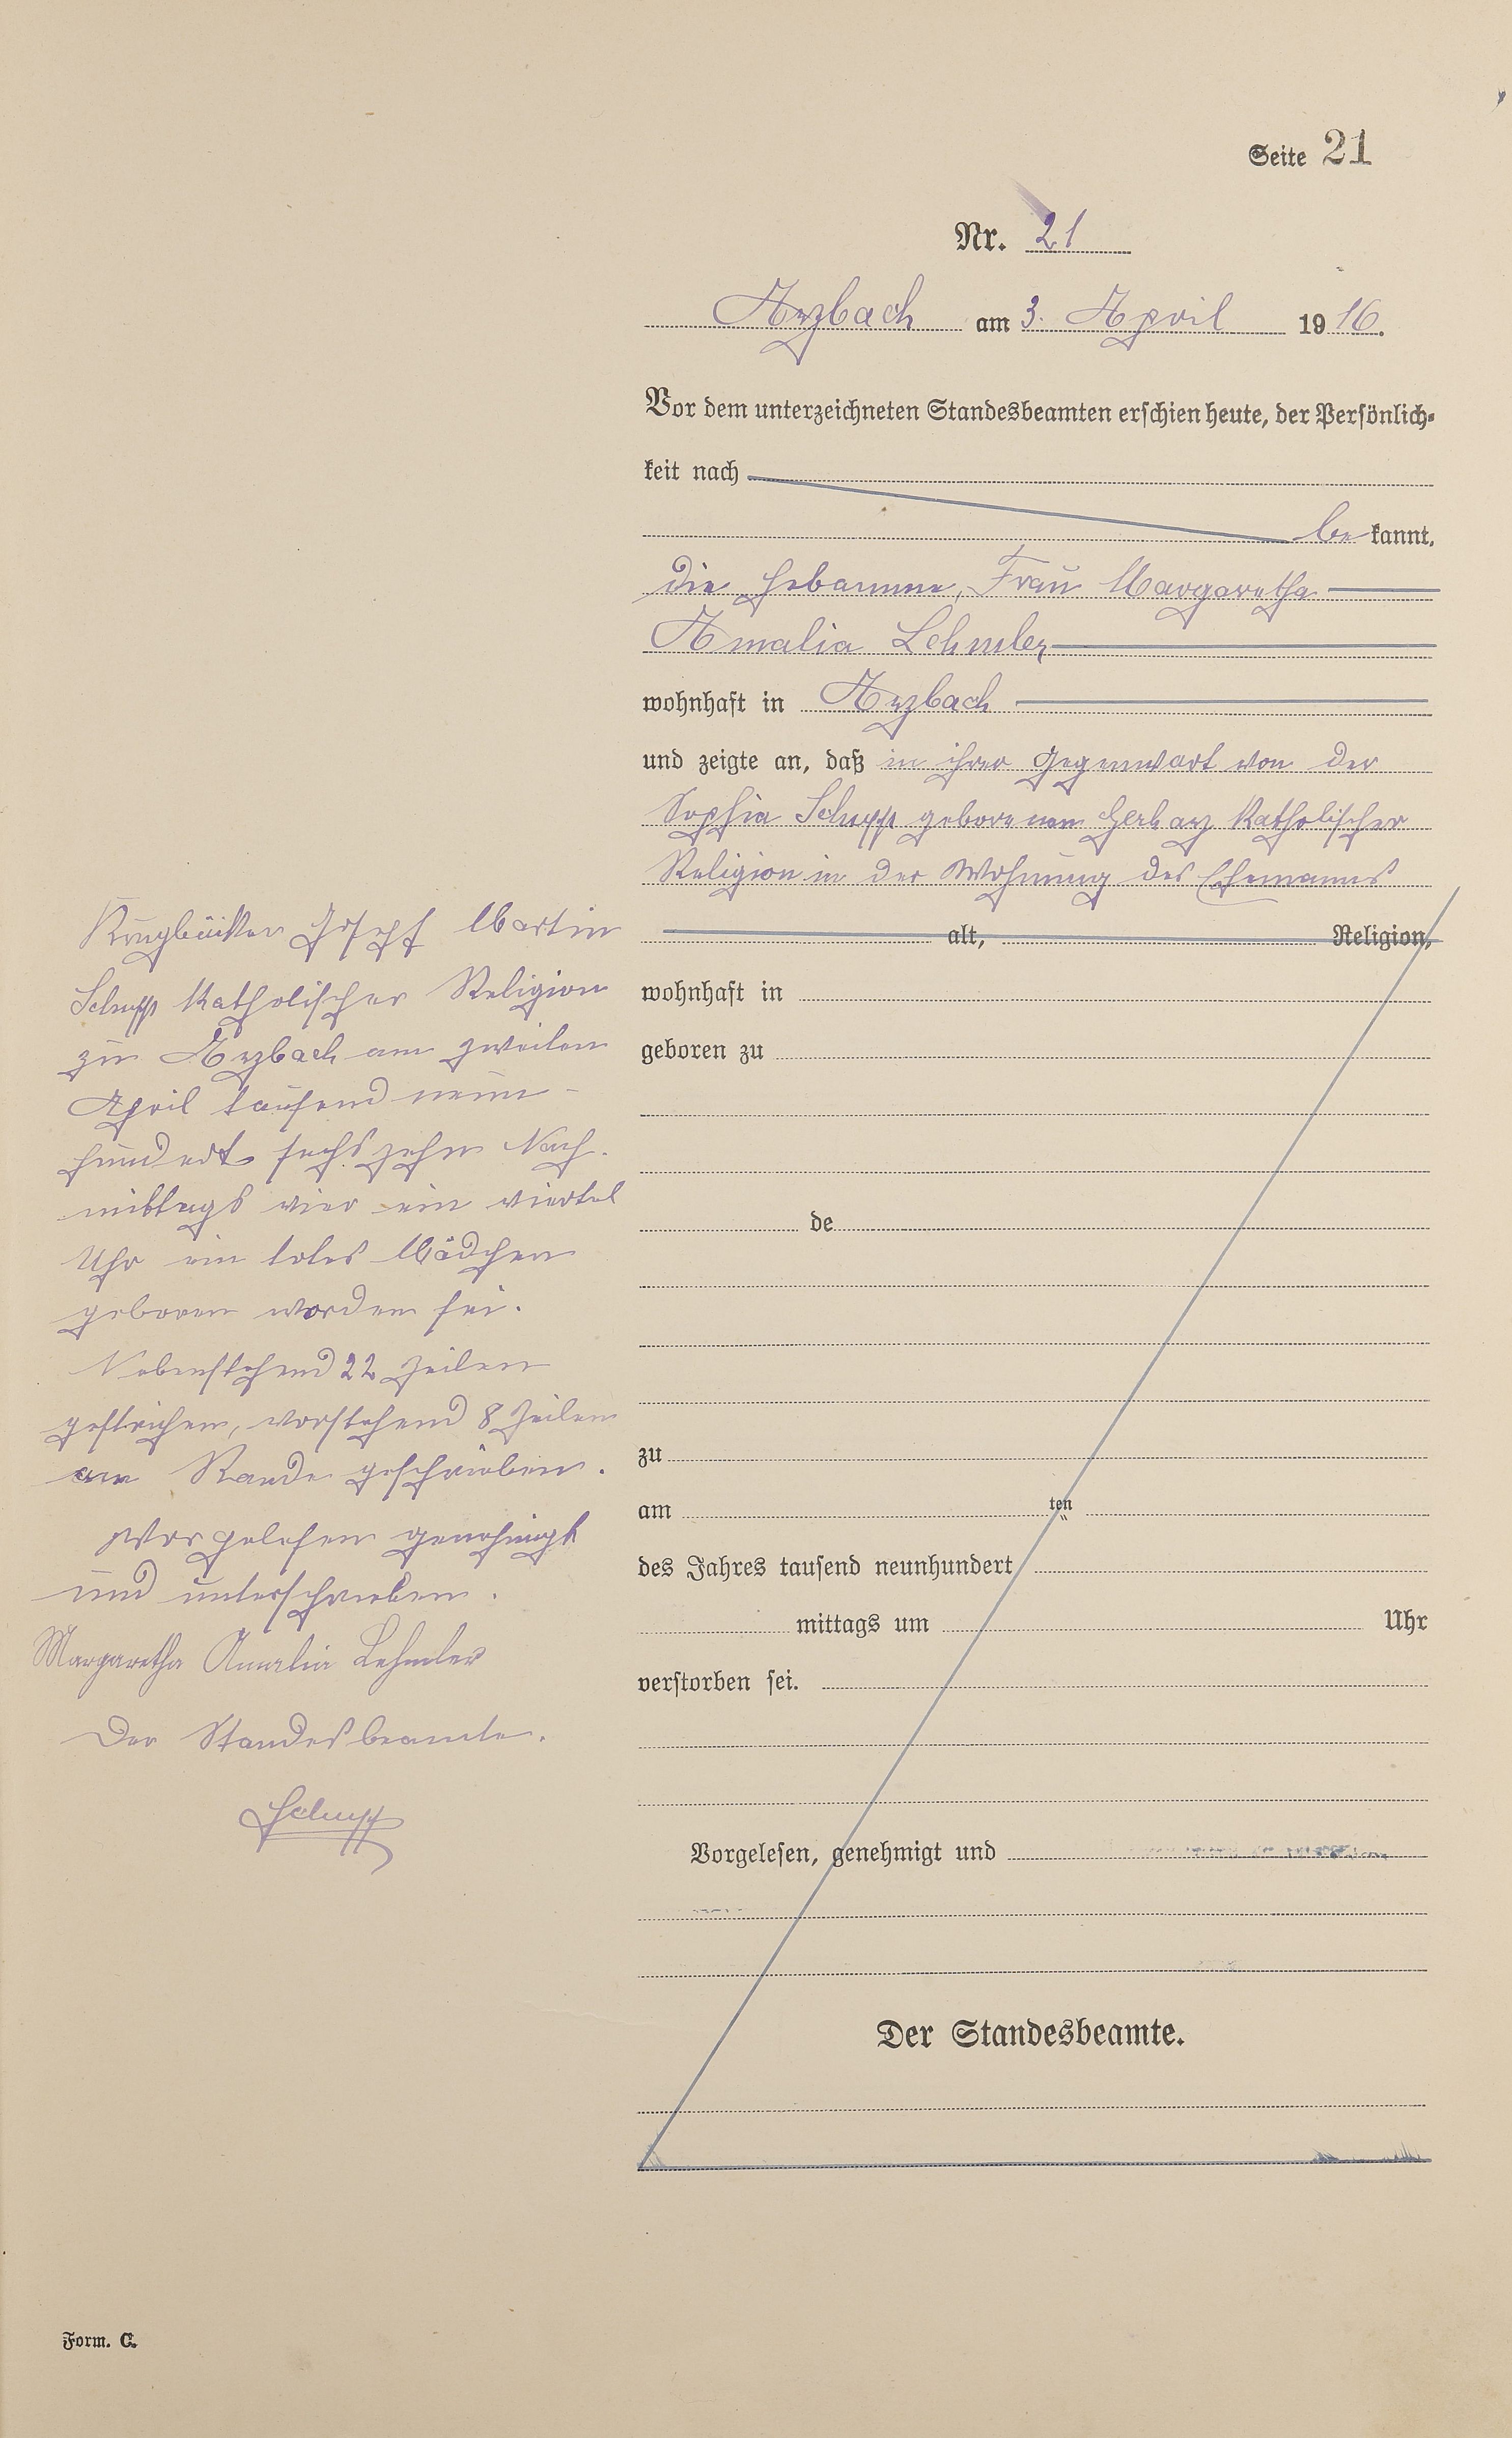 Seite 21
Nr. 21
Arzbach am 3. April 1916.
Vor dem unterzeichneten Standesbeamten erschien heute, der Persönlich-
keit nach
be kannt,
die Hebamme, Frau Margaretha
Amalia Lehmler
wohnhaft in Arzbach
und zeigte an, daß in ihrer Gegenwart von der
Sophia Schupp geborenen Herbarz Katholischer
Religion in der Wohnung des Ehemannes
alt, Religion,
Krugbäcker Josef Martin
Schupp Katholischer Religion
zu Arzbach am zweiten
April tausend neun-
hundert sechszehn Nach-
mittags vier ein viertel
Uhr ein totes Mädchen
geboren worden sei.
Nebenstehend 22 Zeilen
gestrichen, vorstehend 8 Zeilen
am Rande geschrieben.
Vorgelesen genehmigt
und unterschrieben.
Margaretha Amalia Lehmler
Der Standesbeamte.
Schupp
wohnhaft in
geboren zu
de
zu
am ten
des Jahres tausend neunhundert
mittags um Uhr
verstorben sei.
Vorgelesen, genehmigt und
Der Standesbeamte.
Form. C.